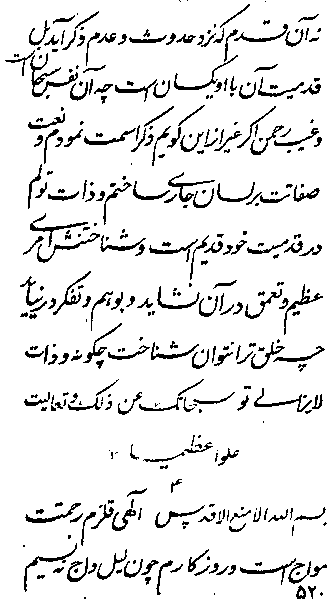 نه آن قدم که نزد حدوث و عدم ذکر آید بل
قدمیت آن با او یکسان است چه آن نفس سبحان است
و غیب رحمن اگر غیر از این گویم ذکر اسمت نمودم و نعت
صفاتت بر لسان جاری ساختم و ذات تو لم
در قدمیت خود قدیم است و شناختنش امری
عظیم و تعمق در آن نشاید و بوهم و تفکر در نیاید
چه خلق ترا نتوان شناخت چگونه و ذات
لایزالی تو سبحانک عن ذلک و تعالیت
علوا عظیما
۴
بسم الله الامنع الاقدس الهی قلزم رحمتت
مواج است و روزگارم چون لیل داج نه نسیم
۵۲۰